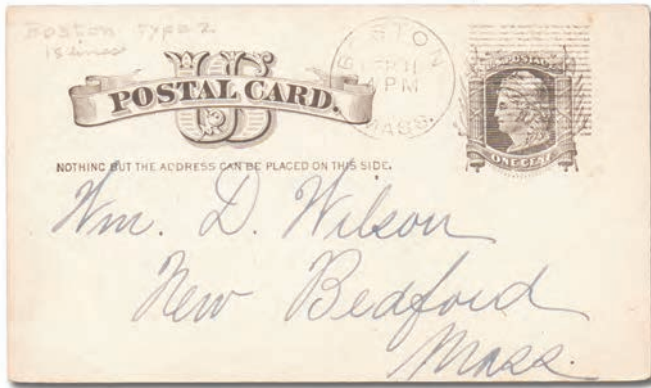 Boston Type 2
15 lines
US
POSTAL CARD.
BOSTON
11
4 PM
MASS.
U.S. POSTAGE
ONE CENT
NOTHING BUT THE ADDRESS CAN BE PLACED ON THIS SIDE.
Wm. D. Wilson
New Bedford
Mass.